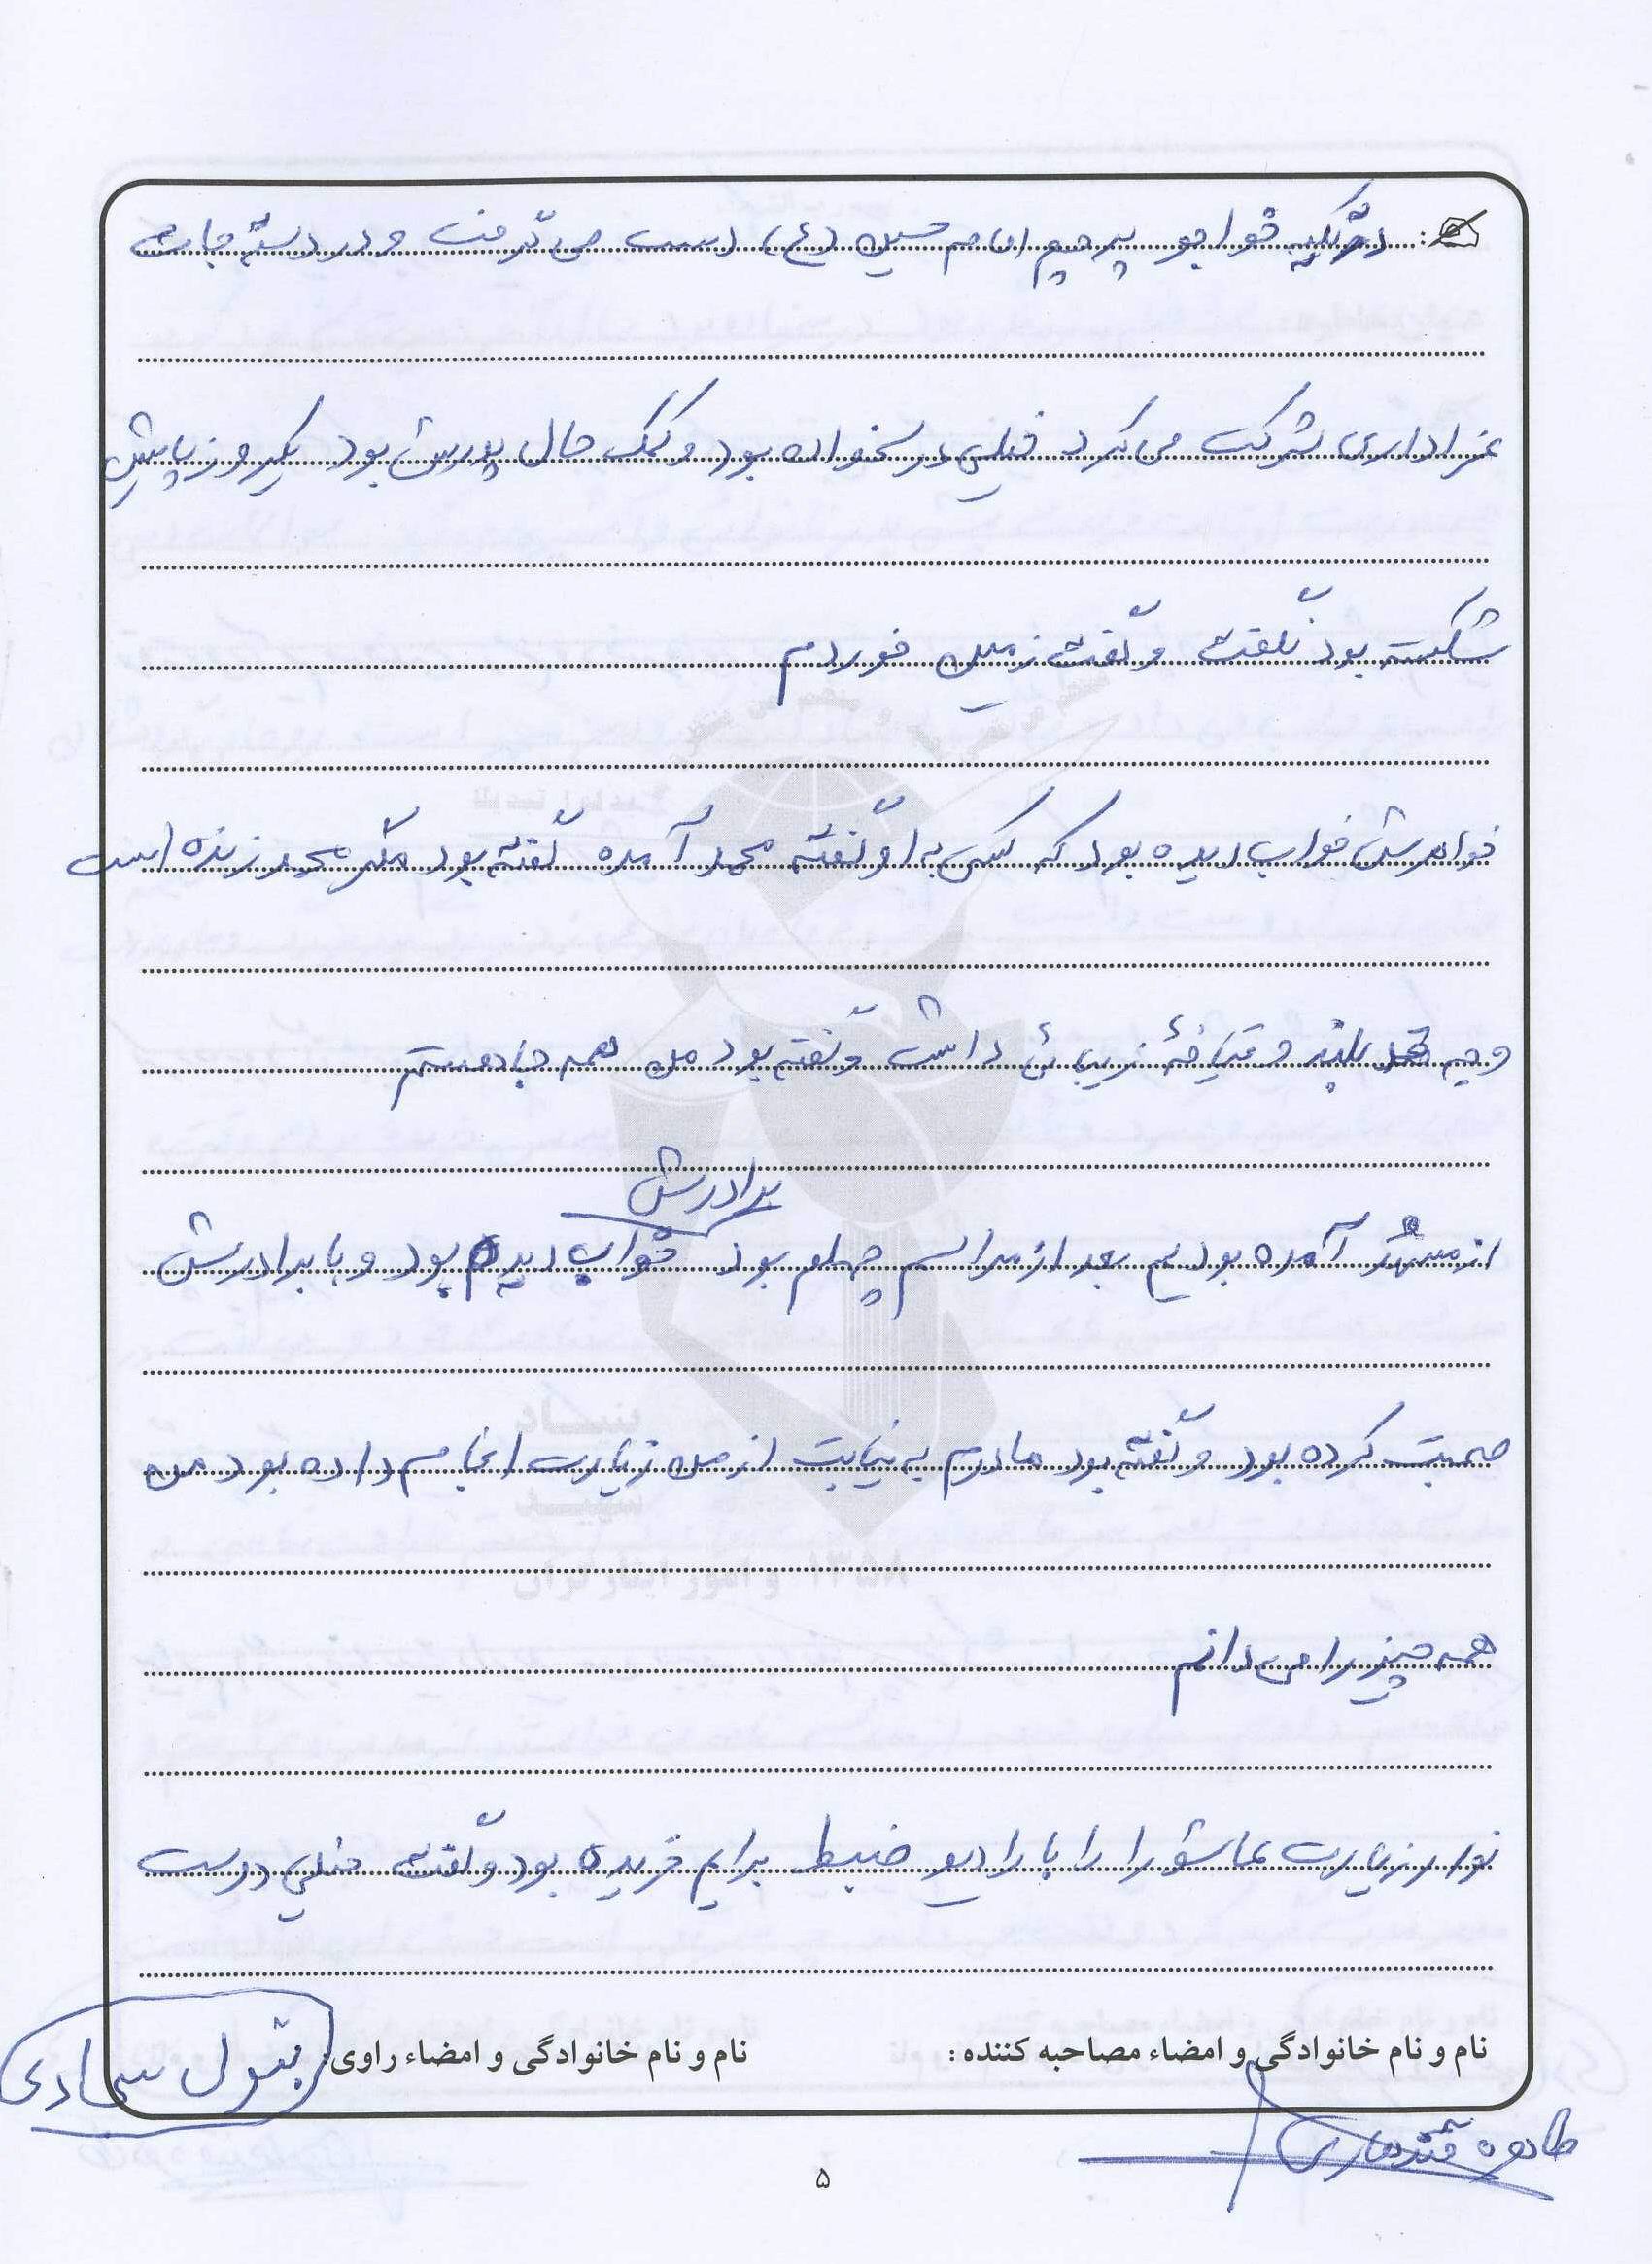 در تکیه خواجو پرچم امام حسین (ع) دست می گرفت و در دسته جات
عزاداری شرکت می کرد خیلی درسخوان بود و کمک حال پدرش بود یکروز پایش
شکسته بود نگفت و گفت زمین خوردم
خواهرش خواب دیده بود که کسی به او گفته محمد آمده گفته بود مگر محمد زنده است
و چه قد بلند و قیافهٔ زیبائی داشت و گفته بود من همه جا هستم
برادرش
از مشهد آمده بودیم بعد از مراسم چهلم بود خواب دیده بود و با برادرش
صحبت کرده بود و گفته بود مادرم به نیابت از من زیارت انجام داده بود من
همه چیز را می دانم
نوار زیارت عاشورا را با رادیو ضبط برایم خریده بود و گفت خیلی درست
نام و نام خانوادگی و امضاء مصاحبه کننده :
نام و نام خانوادگی و امضاء راوی:
بتول سجادی
طاهره قندهاری
۵